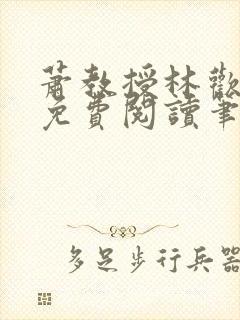 蕭教授林歡
免費閱讀筆
多足步行兵器